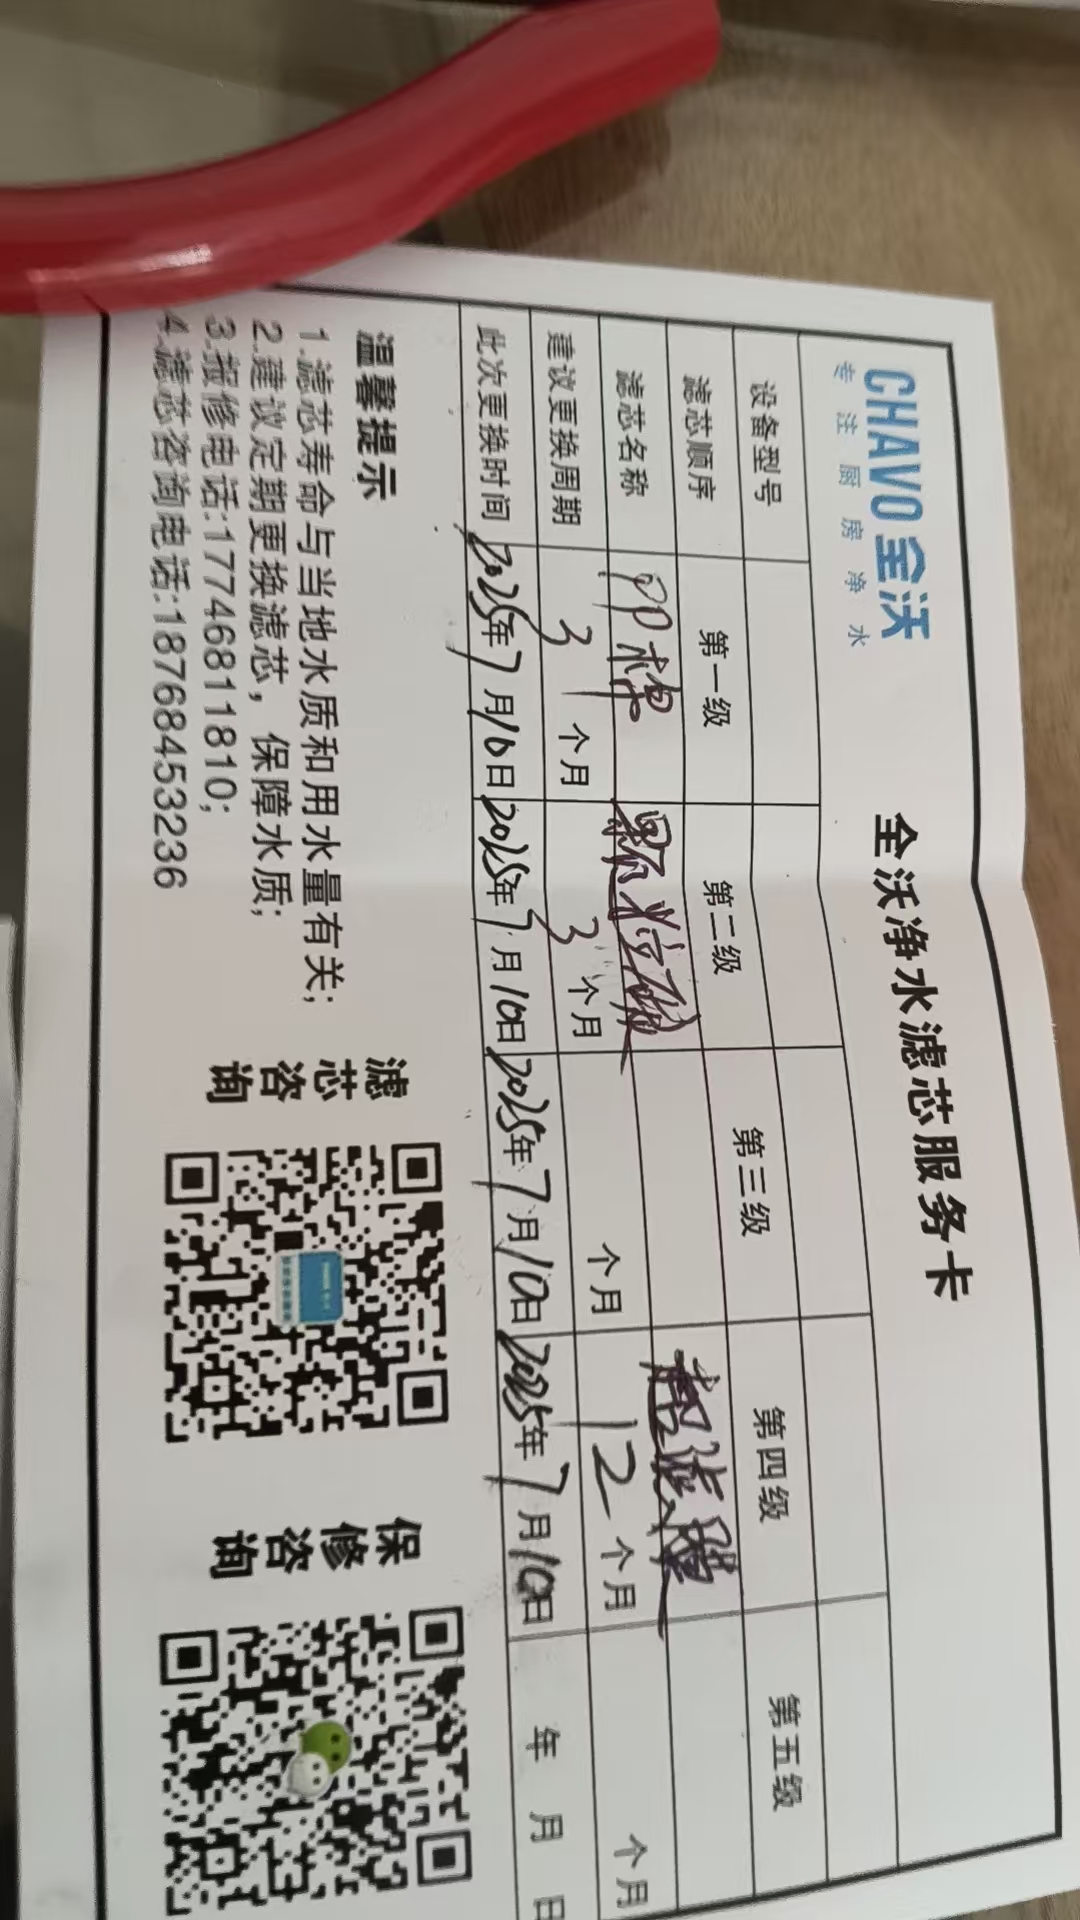 CHAVO 全沃
专注厨房净水
全沃净水滤芯服务卡
设备型号
滤芯顺序 第一级 第二级 第三级 第四级 第五级
滤芯名称 PP棉 颗粒碳 超滤膜
建议更换周期 3个月 3个月 个月 12个月 个月
此次更换时间 2025年7月10日 2025年7月10日 2025年7月10日 2025年7月10日 年 月 日
温馨提示
1.滤芯寿命与当地水质和用水量有关;
2.建议定期更换滤芯，保障水质;
3.报修电话:17746811810;
4.滤芯咨询电话:18768453236
滤芯咨询
保修咨询